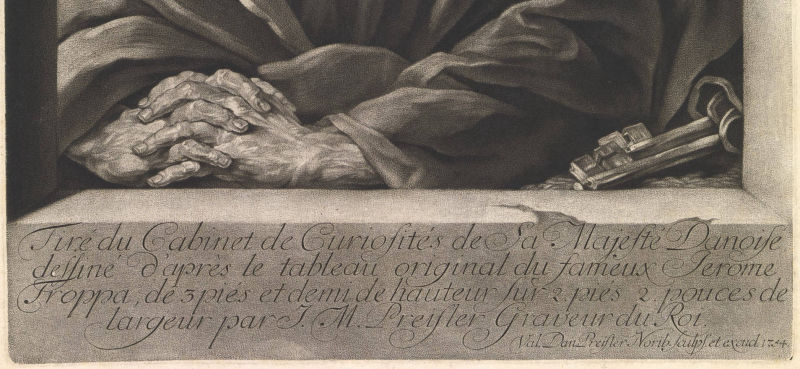 Tiré du Cabinet de Curiosités de Sa Majesté Danoise
dessiné d'après le tableau original du fameux Jerome
Troppa, de 3 piés et demi de hauteur sur 2. piés 2. pouces de
largeur par J. M. Preisler Graveur du Roi.
Val. Dan. Preisler Norib. sculps. et excud. 1754.